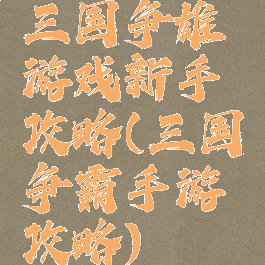 三国争雄
游戏新手
攻略(三国
争霸手游
攻略)